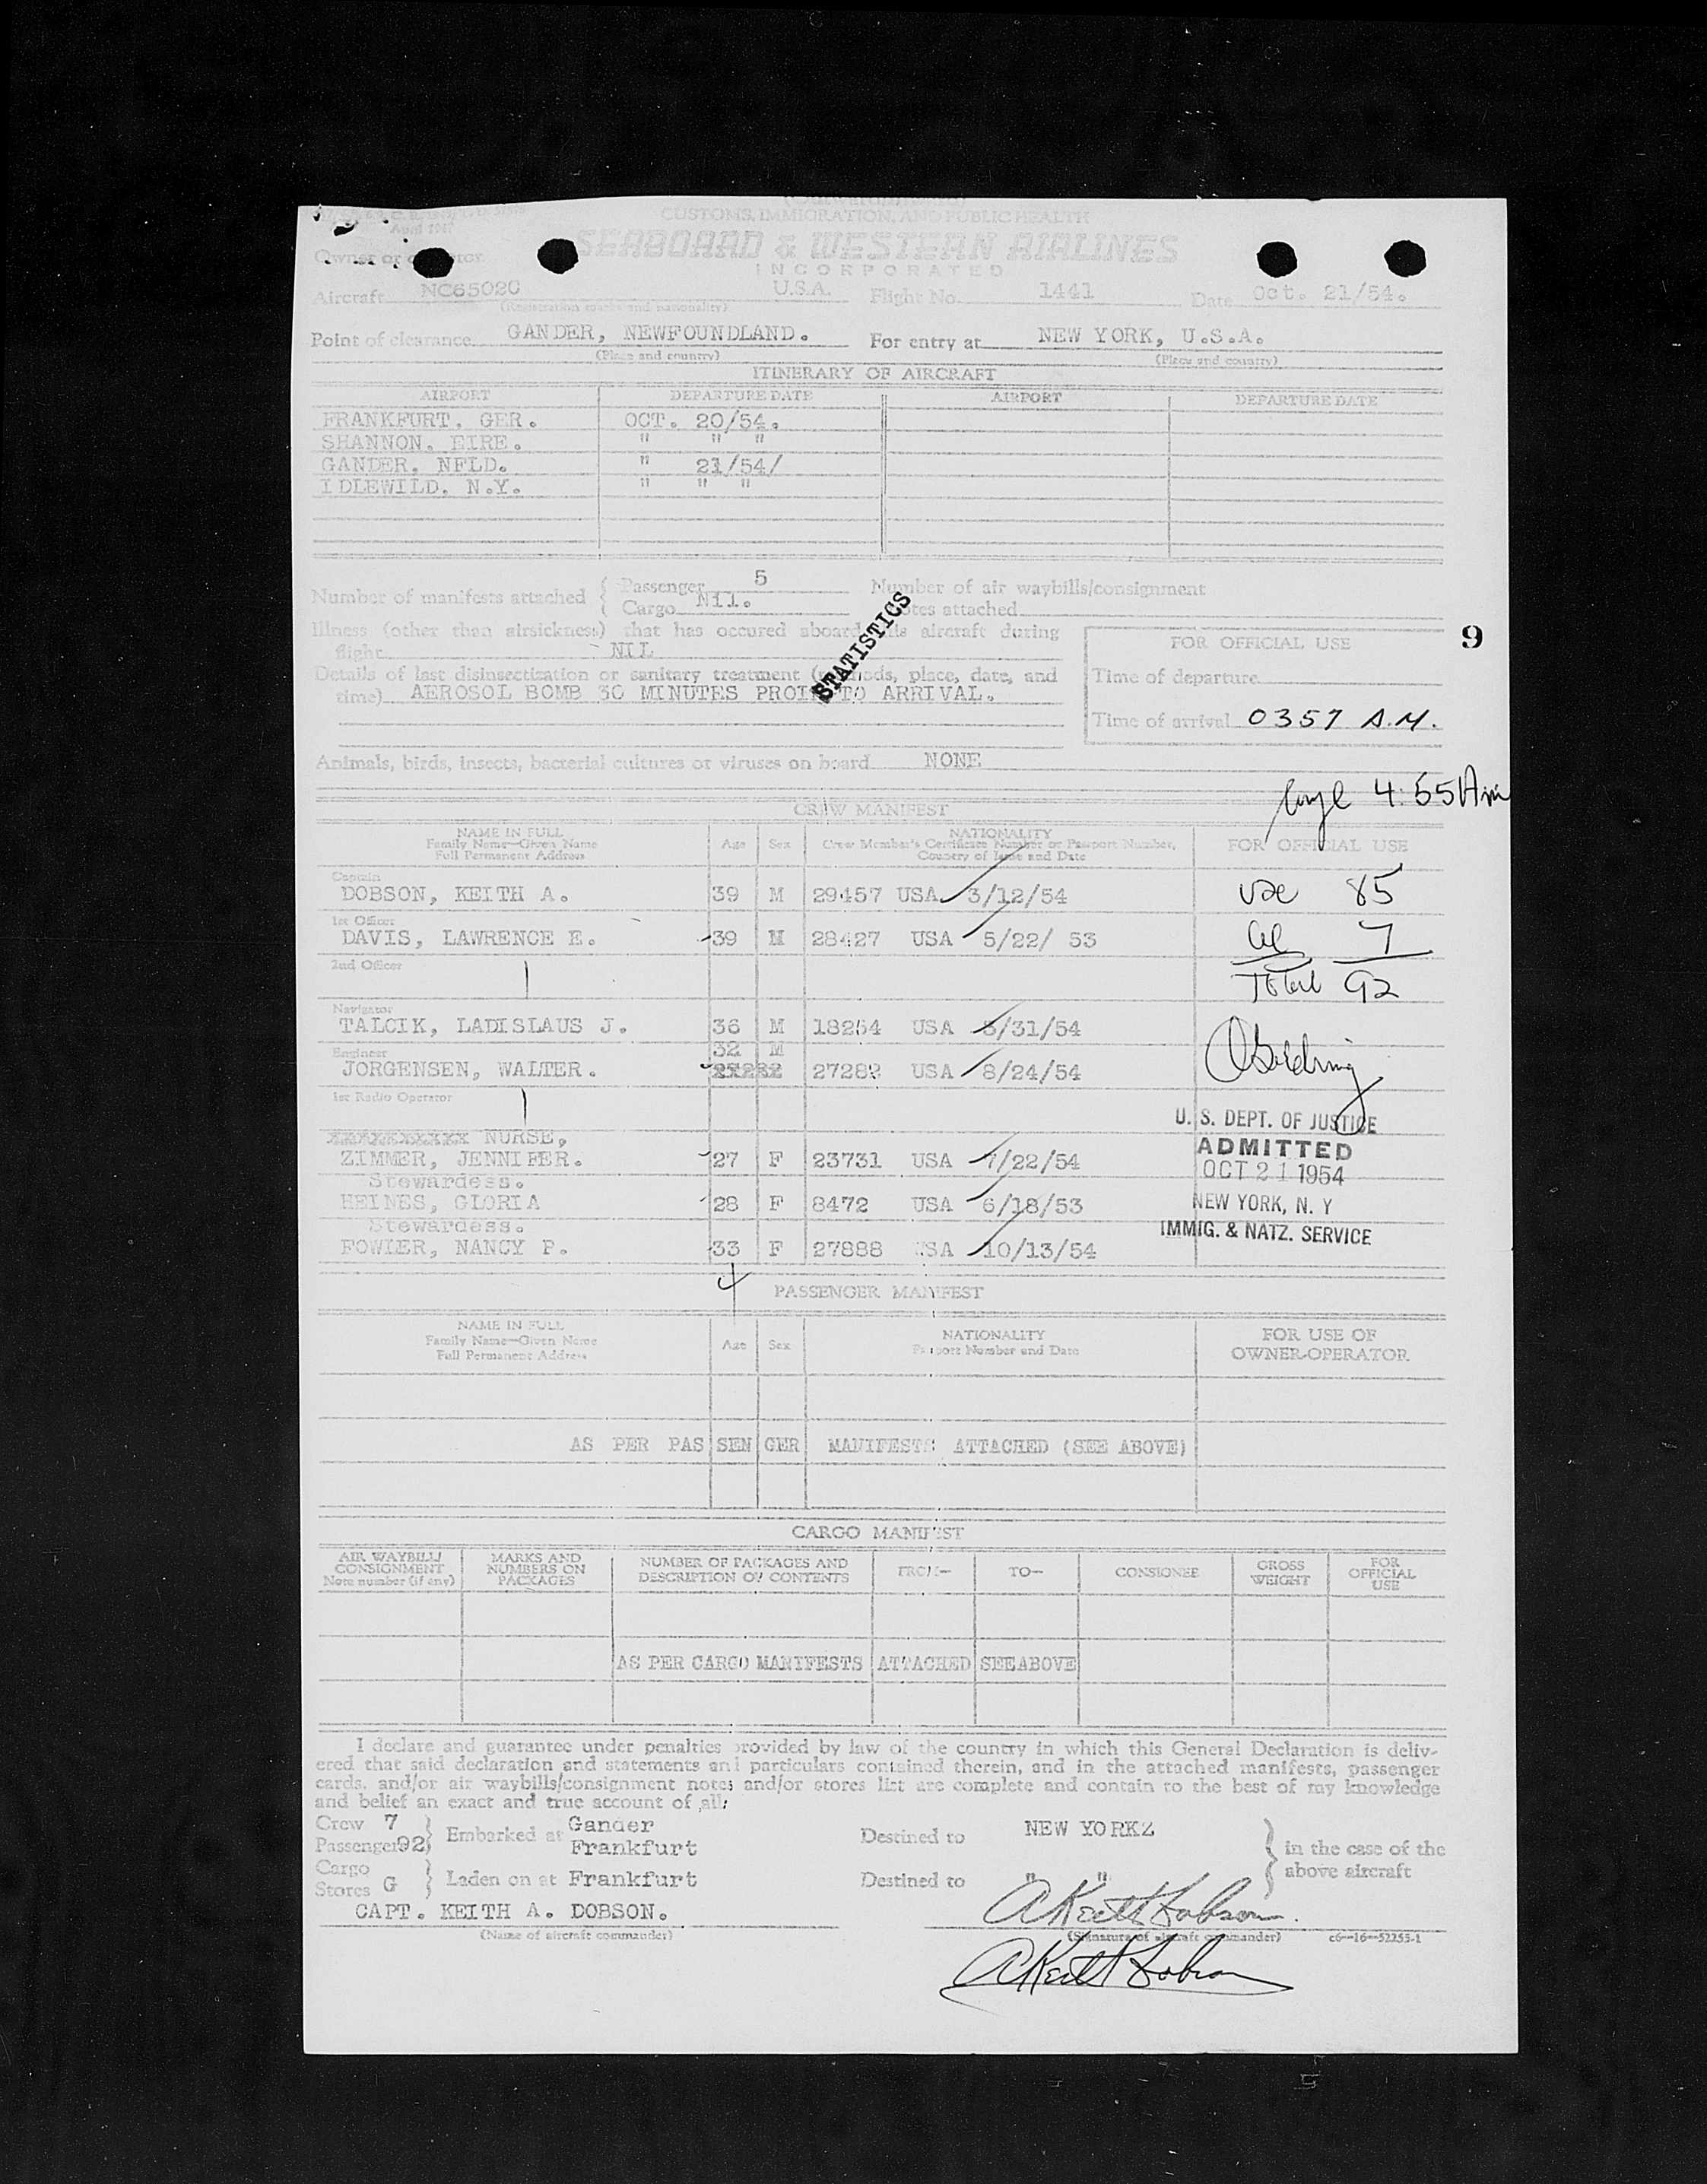 CUSTOMS, IMMIGRATION, AND PUBLIC HEALTH
April 1947
Owner or
SEABOARD & WESTERN AIRLINES
INCORPORATED
Aircraft NC65020 U.S.A. Flight No. 1441 Date Oct. 21/54.
(Registration marks and nationality)
Point of clearance GANDER, NEWFOUNDLAND. For entry at NEW YORK, U.S.A.
(Place and country) (Place and country)
ITINERARY OF AIRCRAFT
AIRPORT DEPARTURE DATE AIRPORT DEPARTURE DATE
FRANKFURT, GER. OCT. 20/54.
SHANNON, EIRE. " " "
GANDER, NFLD. " 21/54/
IDLEWILD, N.Y. " " "
Number of manifests attached { Passenger 5 Number of air waybills/consignment
Cargo Nil. notes attached
STATISTICS
Illness (other than airsickness) that has occured aboard this aircraft during
flight NIL
FOR OFFICIAL USE
9
Details of last disinsectization or sanitary treatment (methods, place, date, and
time) AEROSOL BOMB 30 MINUTES PROIR TO ARRIVAL.
Time of departure
Time of arrival 0357 A.M.
Animals, birds, insects, bacterial cultures or viruses on board NONE
4:55 Am
CREW MANIFEST
NAME IN FULL
Family Name—Given Name
Full Permanent Address
Age Sex
NATIONALITY
Crew Member's Certificate Number or Passport Number,
Country of Issue and Date
FOR OFFICIAL USE
Captain
DOBSON, KEITH A. 39 M 29457 USA 3/12/54
USC 85
1st Officer
DAVIS, LAWRENCE E. 39 M 28427 USA 5/22/ 53
al 7
2nd Officer
Total 92
Navigator
TALCIK, LADISLAUS J. 36 M 18254 USA 8/31/54
Engineer 32 M
JORGENSEN, WALTER. 27282 USA 8/24/54
1st Radio Operator
U. S. DEPT. OF JUSTICE
ADMITTED
OCT 21 1954
NEW YORK, N. Y
IMMIG. & NATZ. SERVICE
NURSE,
ZIMMER, JENNIFER. 27 F 23731 USA 7/22/54
Stewardess.
HEINES, GLORIA 28 F 8472 USA 6/18/53
Stewardess.
FOWLER, NANCY P. 33 F 27888 USA 10/13/54
4
PASSENGER MANIFEST
NAME IN FULL
Family Name—Given Name
Full Permanent Address
Age Sex
NATIONALITY
Passport Number and Date
FOR USE OF
OWNER-OPERATOR
AS PER PAS SEN GER MANIFESTS ATTACHED (SEE ABOVE)
CARGO MANIFEST
AIR WAYBILL/
CONSIGNMENT
Note number (if any)
MARKS AND
NUMBERS ON
PACKAGES
NUMBER OF PACKAGES AND
DESCRIPTION OF CONTENTS
FROM—
TO—
CONSIGNEE
GROSS
WEIGHT
FOR
OFFICIAL
USE
AS PER CARGO MANIFESTS ATTACHED SEE ABOVE
I declare and guarantee under penalties provided by law of the country in which this General Declaration is deliv-
ered that said declaration and statements and particulars contained therein, and in the attached manifests, passenger
cards, and/or air waybills/consignment notes and/or stores list are complete and contain to the best of my knowledge
and belief an exact and true account of all:
Crew 7
Passenger 92 } Embarked at Gander
Frankfurt
Destined to NEW YORKZ
in the case of the
above aircraft
Cargo
Stores G } Laden on at Frankfurt
Destined to " "
CAPT. KEITH A. DOBSON.
A Keith Dobson
(Name of aircraft commander) (Signature of aircraft commander) c6—16—52255-1
A Keith Dobson